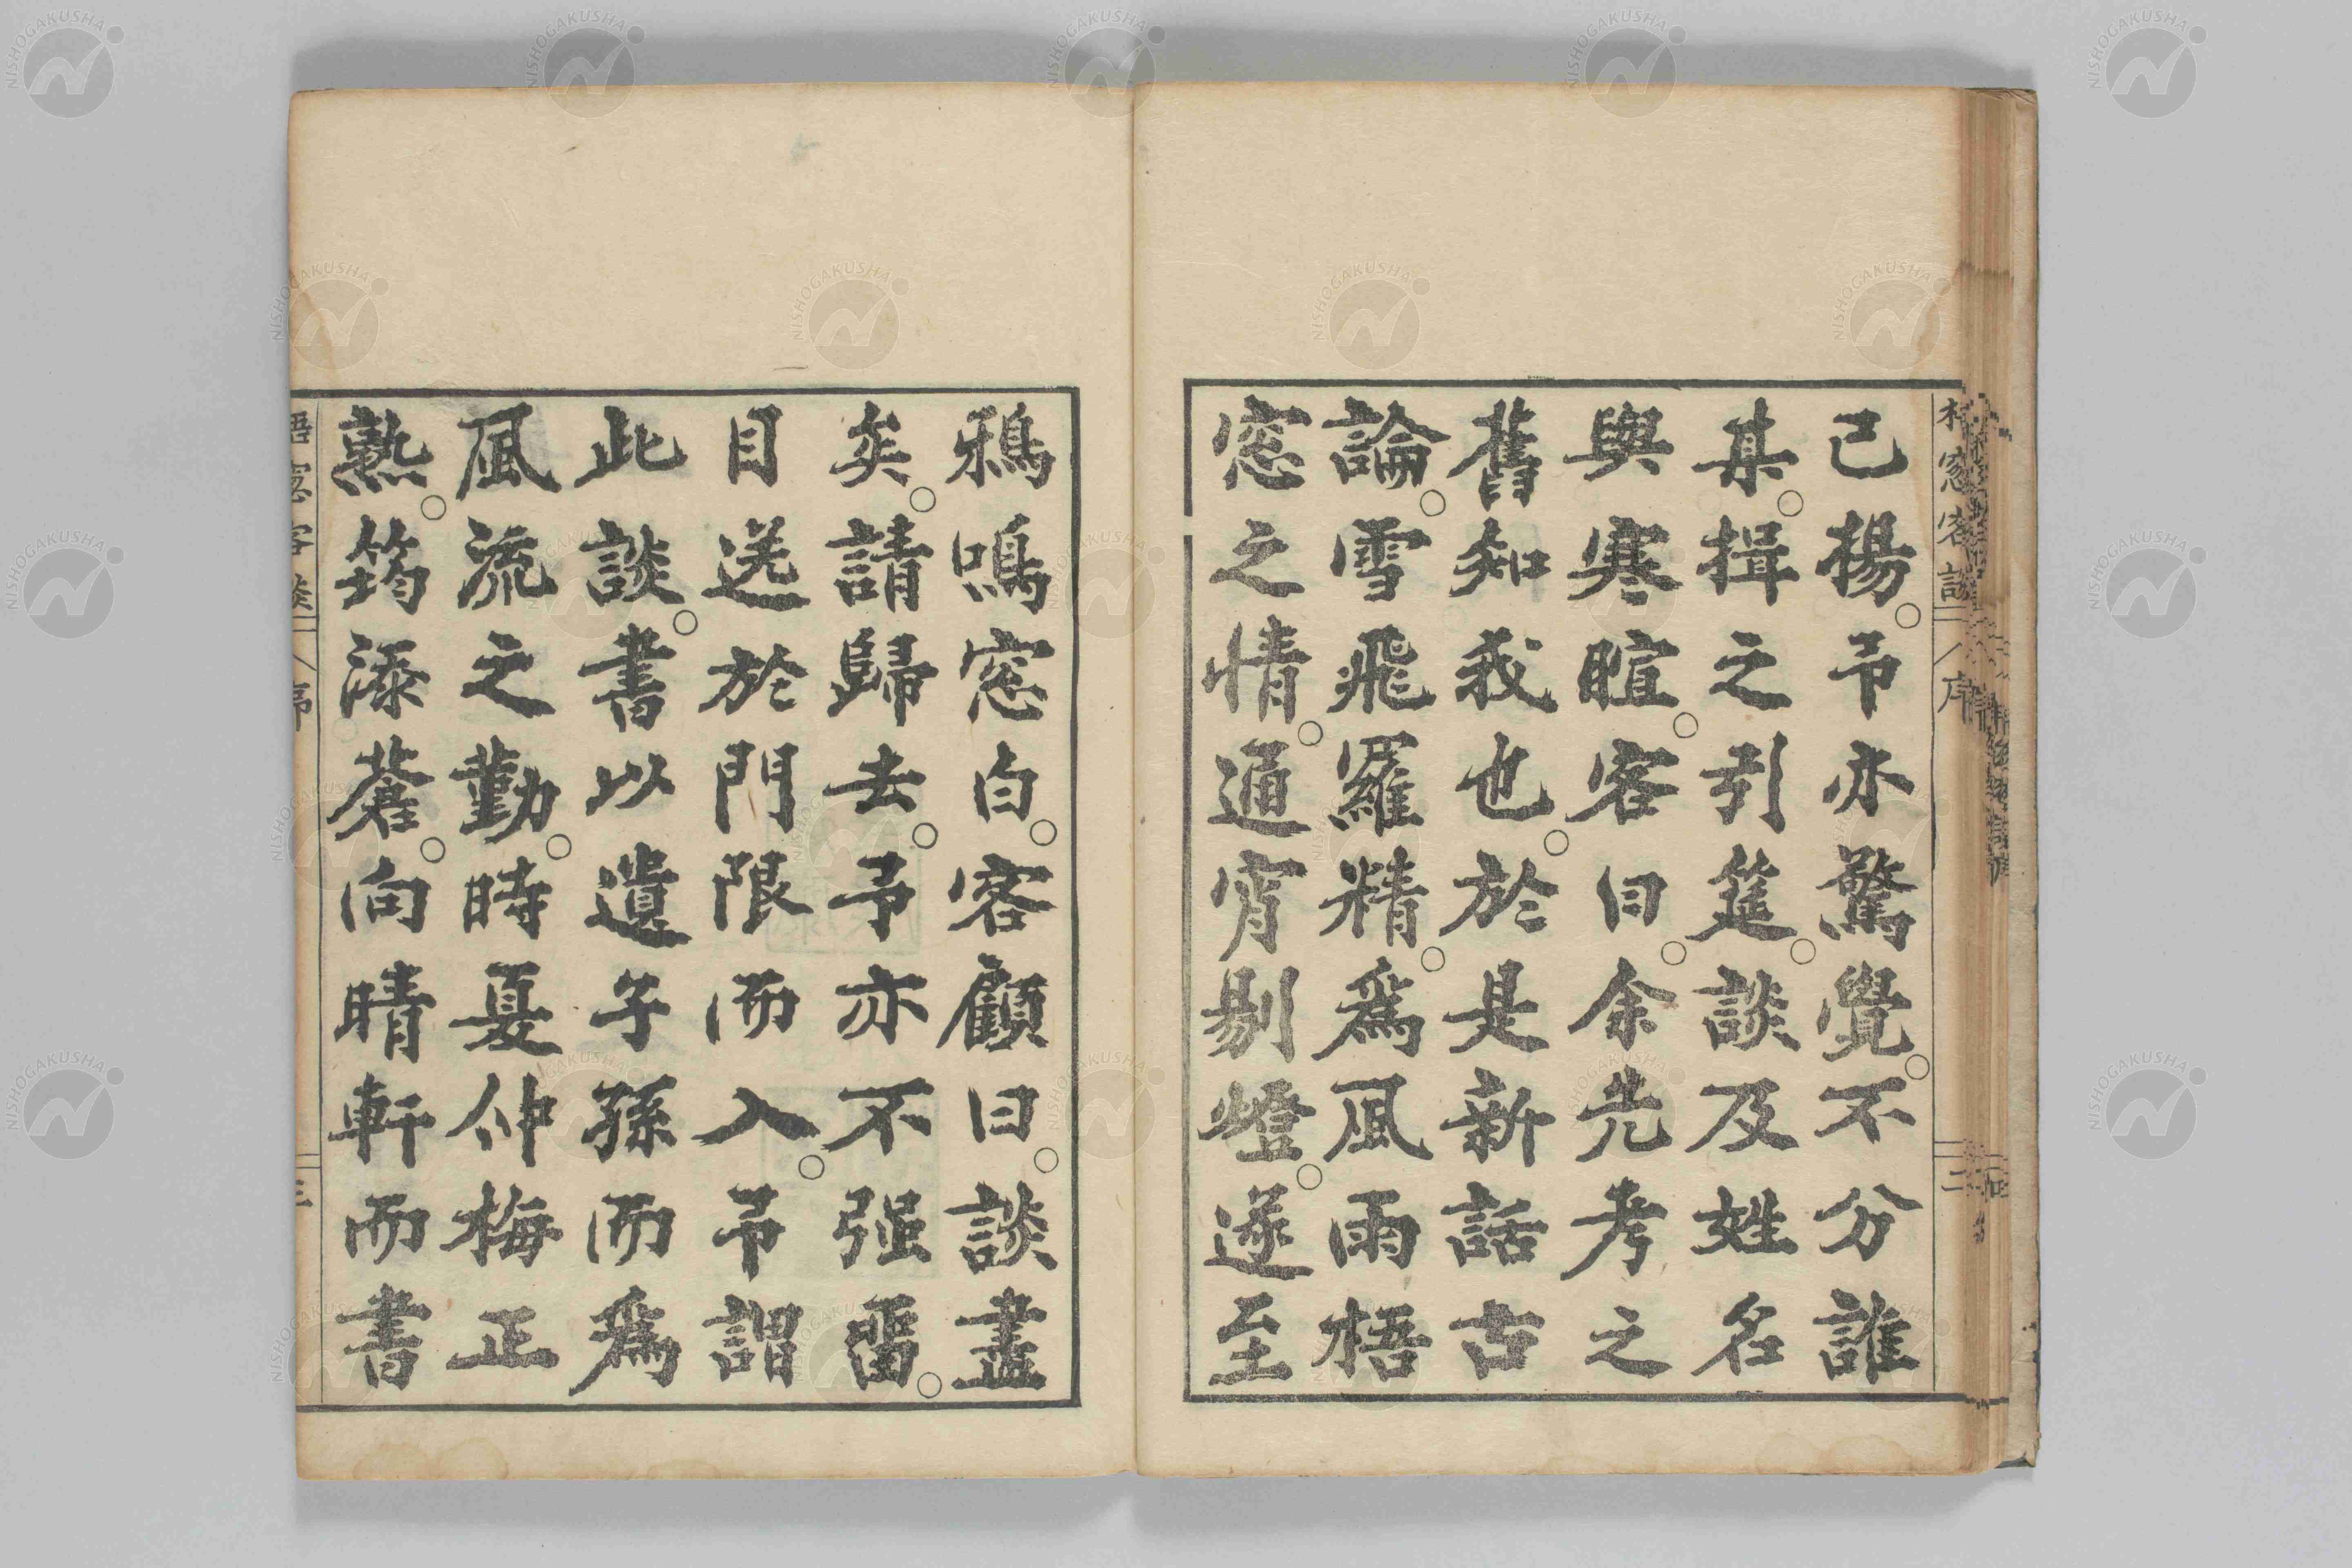 己揚。予亦驚覺。不分誰
某。揖之引筵。談及姓名
與寒暄。客曰。余先考之
舊知我也。於是新話古
論。雪飛羅精。爲風雨梧
窓之情。通宵剔燈。遂至
鴉鳴窓白。客顧曰。談盡
矣。請歸去。予亦不强畱。
目送於門限而入。予謂
此談。書以遺子孫而爲
風流之勸。時夏仲梅正
熟。筠添蒼。向晴軒而書
梧窓客談
序
二
梧窓客談
序
三
NISHOGAKUSHA